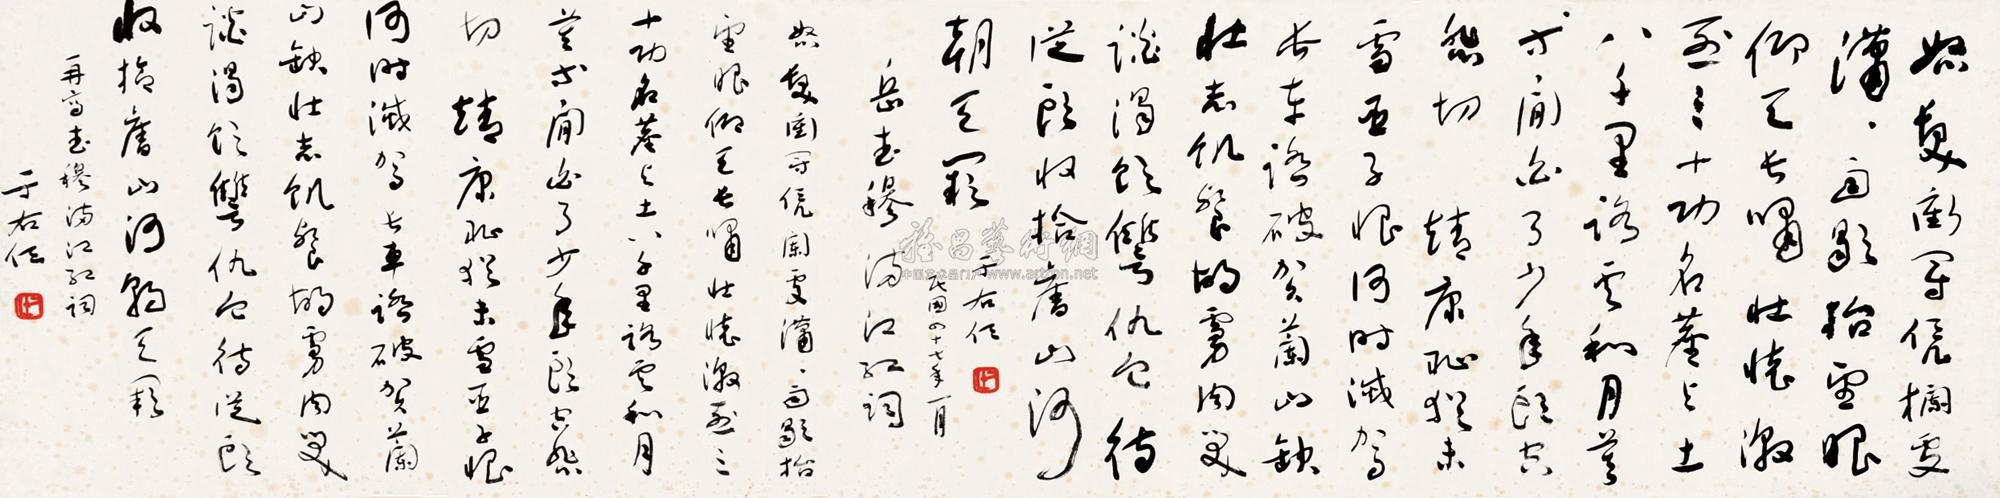 怒髮衝冠憑欄處
瀟、雨歇抬望眼
仰天長嘯壯懷激
烈三十功名塵與土
八千里路雲和月莫
等閒白了少年頭空
悲切 靖康恥猶未
雪臣子恨何時滅駕
長車踏破賀蘭山缺
壯志飢餐胡虜肉笑
談渴飲讐仇血待
從頭收拾舊山河
朝天闕
于右任
民國四十七年一月
岳武穆滿江紅詞
怒髮衝冠憑闌處瀟、雨歇抬
望眼仰天長嘯壯懷激烈三
十功名塵與土八千里路雲和月
莫等閒白了少年頭空悲
切 靖康恥猶未雪臣子恨
何時滅駕長車踏破賀蘭
山缺壯志飢餐胡虜肉笑
談渴飲讐仇血待從頭
收拾舊山河朝天闕
再寫武穆滿江紅詞
于右任
雅昌藝術網
www.artron.net